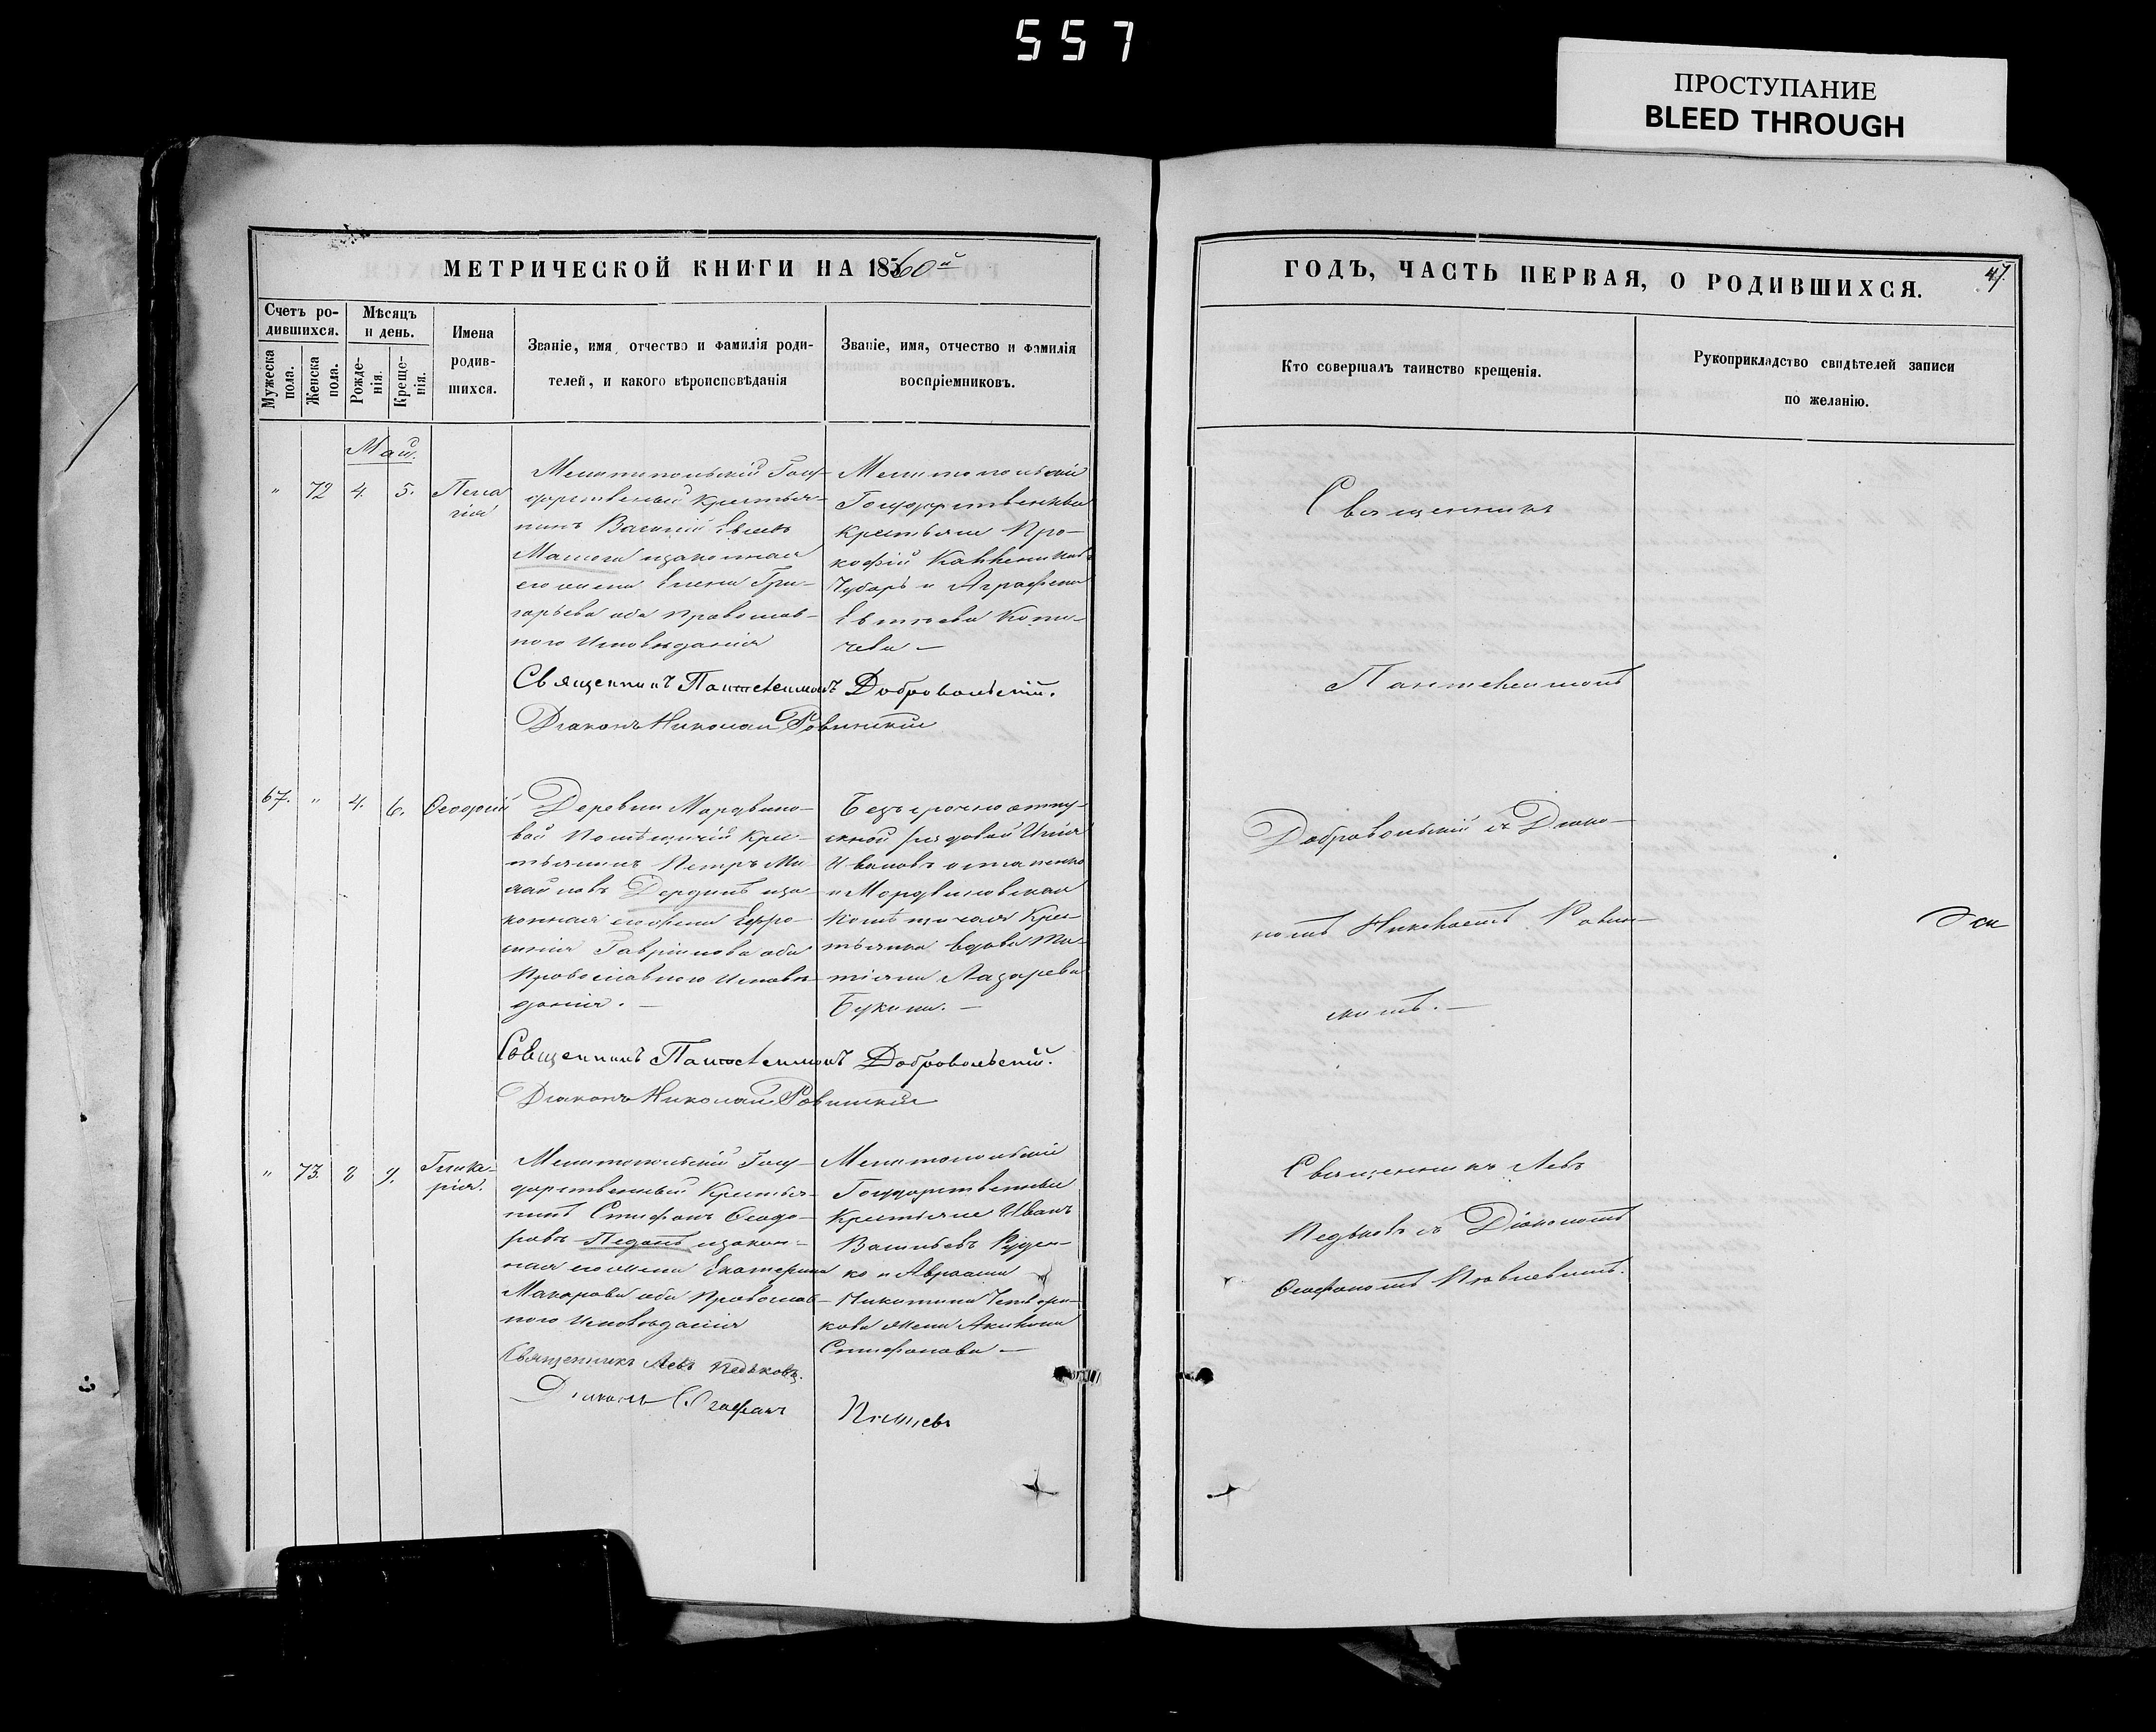 557
ПРОСТУПАНИЕ
BLEED THROUGH
МЕТРИЧЕСКОЙ КНИГИ НА 1860й
Счетъ ро-
дившихся.
Мужеска
пола.
Женска
пола.
Мѣсяцъ
и день.
Рожде-
нія.
Креще-
нія.
Имена
родив-
шихся.
Званіе, имя, отчество и фамилія роди-
телей, и какого вѣроисповѣданія
Званіе, имя, отчество и фамилія
воспріемниковъ.
Май.
" 72 4. 5.
Пела
гія
Мелитопольскій Госу-
дарственный крестья-
нинъ Василій
изаконная
его жена Елена Гри-
горьева оба православ-
ного Исповѣданія
Мелитопольскіе
Государственные
крестьяне Про-
кофій
Чубарь и Аграфена
Евтѣева
чева –
Священникъ Пантелеимонъ Добровольскій.
Діаконъ Николай Ровинскій
67. " 4. 6. Ѳеодосій
Деревни Мордвино-
вой Помѣщичій Кре-
тьянинъ Петръ Ми-
хайловъ изо-
конная его жена Ефро-
синія Гавріилова оба
Православного Исповѣ-
данія. –
Безсрочно отпу-
скной рядовой Илія
Ивановъ Остапенко
и Мордвиновская
Помѣщичая Крес-
тьянка вдова Та-
тіана Лазарева
Букина. –
Священникъ Пантелеимонъ Добровольскій.
Діаконъ Николай Ровинскій
" 73. 8 9.
Глике-
рія.
Мелитопольскій Госу-
дарственный Крестья-
нинъ Стефанъ Ѳеодо-
ровъ Педанъ изакон-
ная его жена Екатерина
Макарова оба Православ-
ного Исповѣданія
Мелитопольскіе
Государственные
Крестьяне Иванъ
Васильевъ Руден-
ко и Авраама
Никитина
кова жена Акилина
Стефанова –
Священникъ Левъ Педьковъ.
Діаконъ Ѳеофанъ
ГОДЪ, ЧАСТЬ ПЕРВАЯ, О РОДИВШИХСЯ.
47.
Кто совершалъ таинство крещенія.
Рукоприкладство свидѣтелей записи
по желанію.
Священникъ
Пантелеимонъ
Добровольскій съ Діако-
номъ Николаемъ Ровин-
скимъ. –
Священникъ Левъ
Педьковъ съ Діакономъ
Ѳеофаномъ